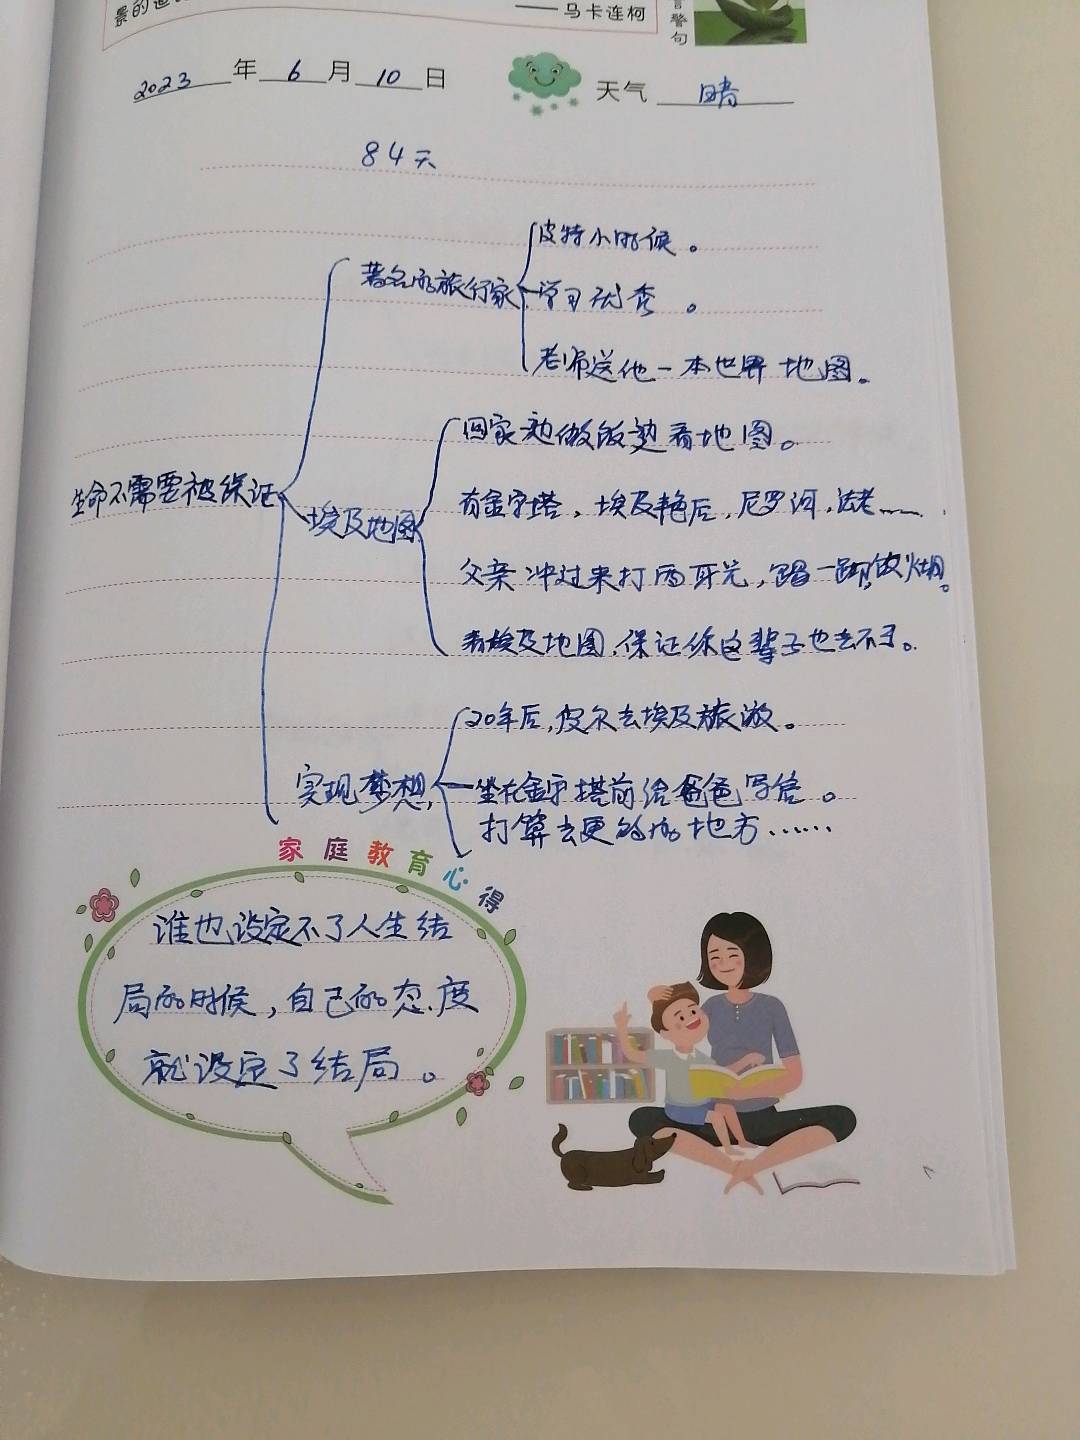 景的
——马卡连柯
言警句
2023年6月10日 天气 晴
84天
皮特小时候。
著名的旅行家 学习优秀。
老师送他一本世界地图。
回家边做饭边看地图。
生命不需要被保证
埃及地图
有金字塔，埃及艳后，尼罗河，法老……
父亲冲过来打两耳光，踢一脚，
看埃及地图，保证你这辈子也去不了。
20年后，皮尔去埃及旅游。
实现梦想， 坐在金字塔前给爸爸写信。
打算去更多的地方……
家庭教育心得
谁也设定不了人生结
局的时候，自己的态度
就设定了结局。